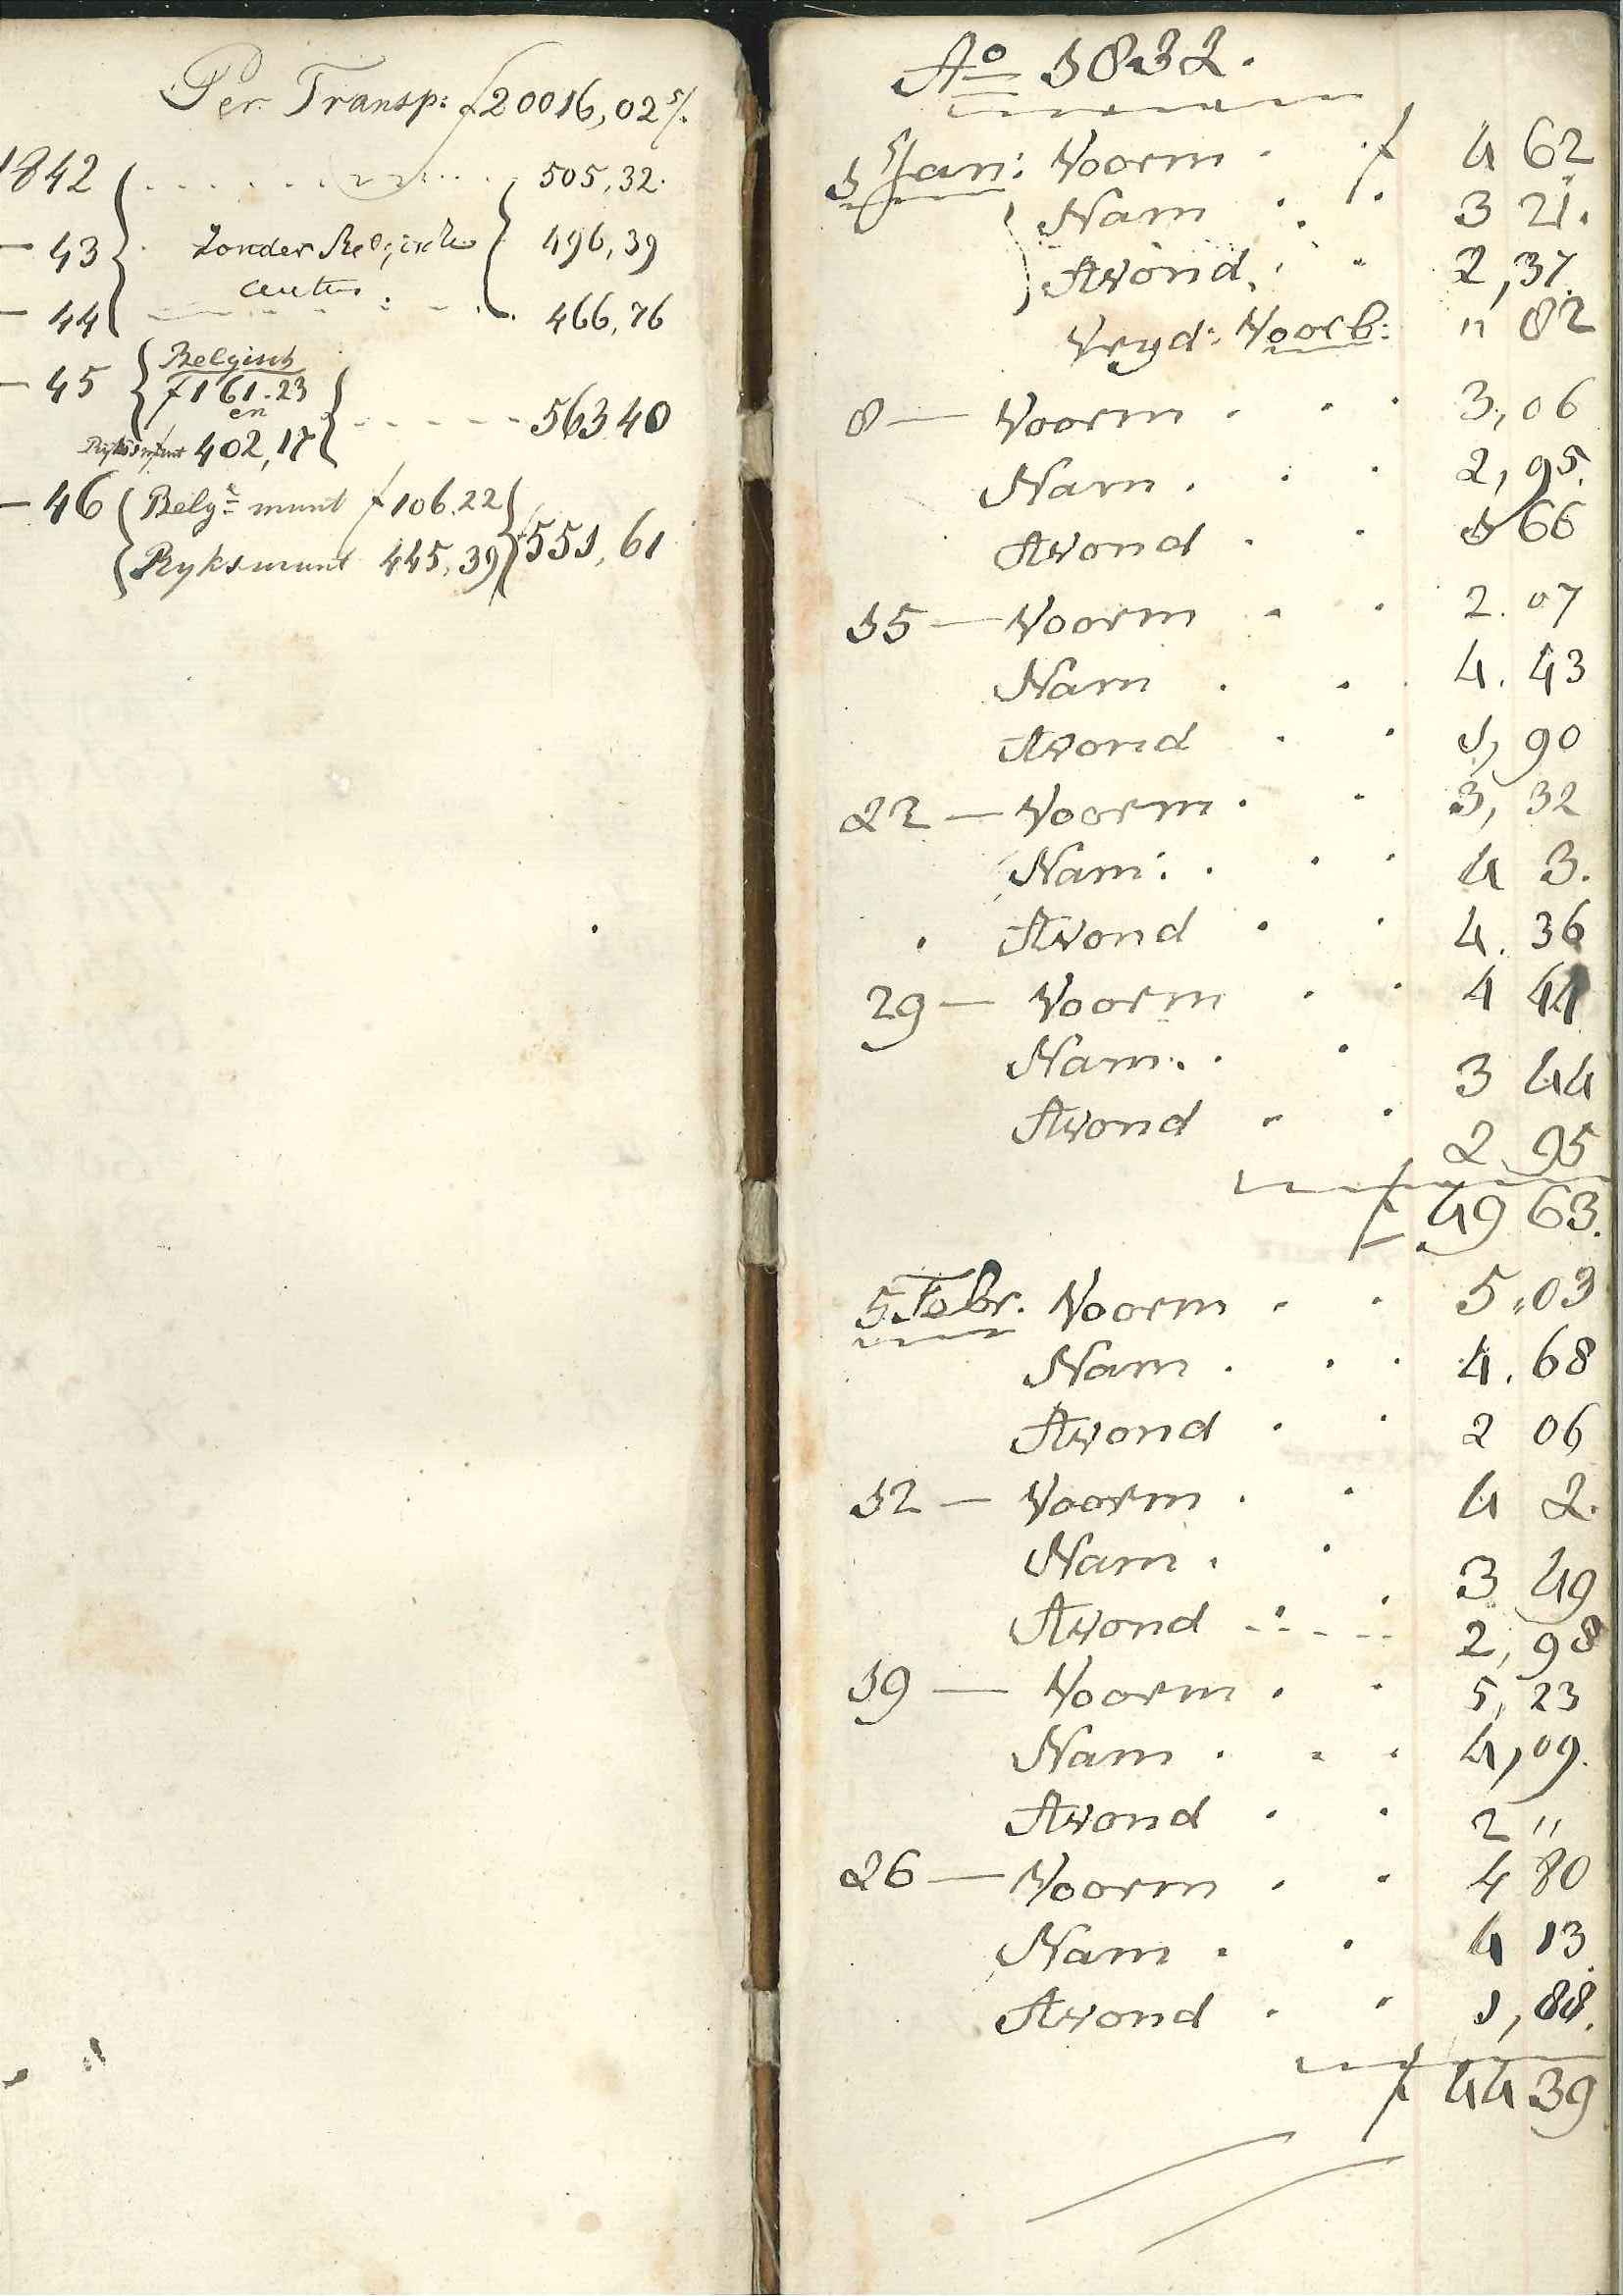 Per Transp: f 20016,02 5/.
1842 505,32.
— 43 Zonder Belgische 496,39
centen.
— 44 466,76
— 45 Belgisch
f 161.23
en 563 40
Ryksmunt 402,17
— 46 Belge munt f 106.22
Ryksmunt 445,39 551,61
Ao 1832.
1 Jan: Voorm f 4 62
Nam 3 21.
Avond 2,37.
Vryd: Voorb: " 82
8 — Voorm 3,06
Nam 2,95.
Avond 1 66
15 — Voorm 2.07
Nam 4.43
Avond 1,90
22 — Voorm 3,32
Nam: 4 3.
Avond 4.36
29 — Voorm 4 44
Nam. 3 44
Avond 2,95
f 49 63.
5 Febr. Voorm 5,03
Nam 4.68
Avond 2 06
12 — Voorm 4 2.
Nam 3 49
Avond 2,98
19 — Voorm 5,23
Nam 4,09.
Avond 2 "
26 — Voorm 4 80
Nam 4 13.
Avond 1,88.
f 44 39